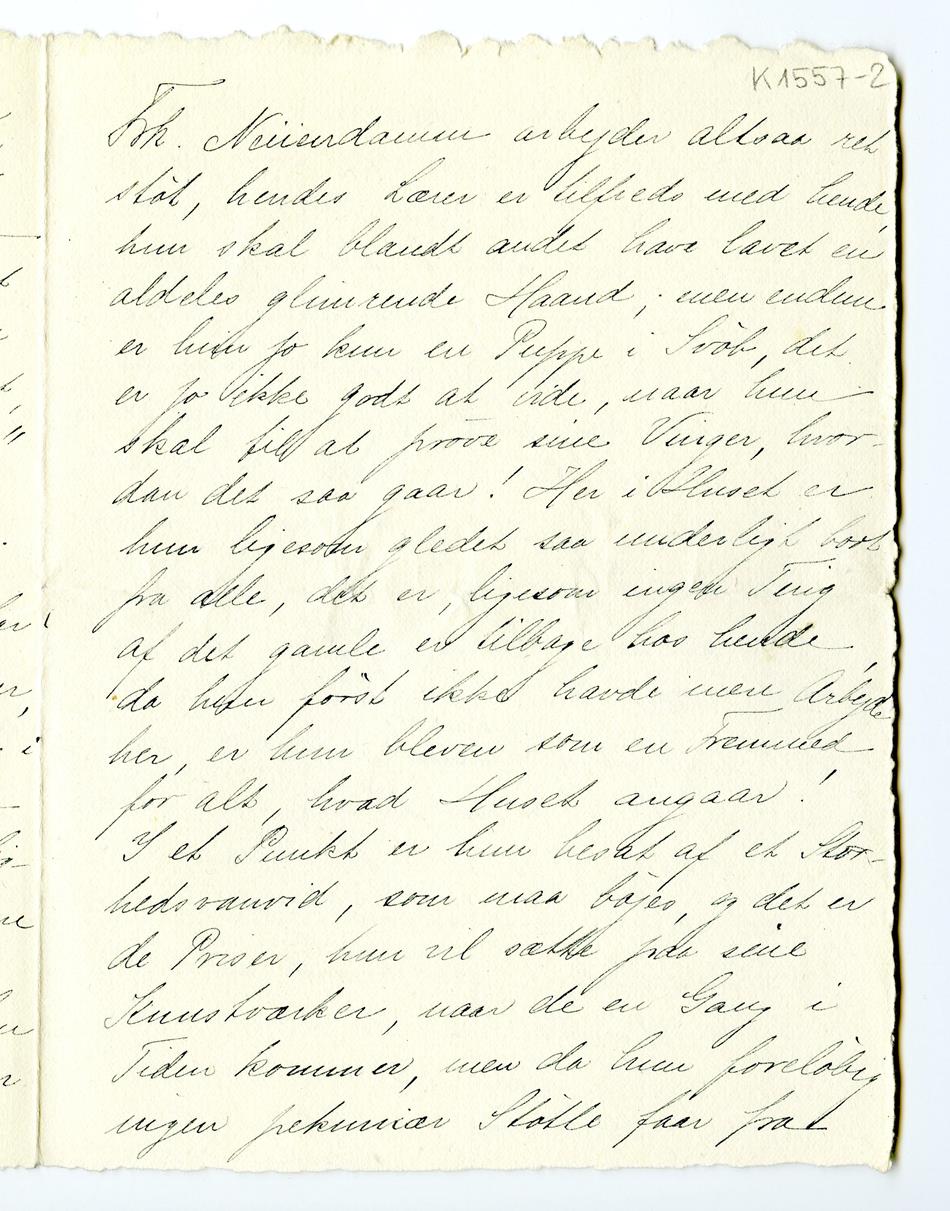 K1557-2
Frk. Neiiendamm arbejder altsaa ret
støt, hendes Lærer er tilfreds med hende,
hun skal blandt andet have lavet en
aldeles glimrende Haand; men endnu
er hun jo kun en Puppe i Svøb, det
er jo ikke godt at vide, naar hun
skal til at prøve sine Vinger, hvor-
dan det saa gaar! Her i Huset er
hun ligesom gledet saa underligt bort
fra alle, det er, ligesom ingen Ting
af det gamle er tilbage hos hende,
da hun først ikke havde mere Arbejde
her, er hun bleven som en Fremmed
for alt, hvad Huset angaar!
I et Punkt er hun besat af et Stor-
hedsvanvid, som maa bøjes, og det er
de Priser, hun vil sætte paa sine
Kunstværker, naar de en Gang i
Tiden kommer, men da hun foreløbig
ingen pekuniær Støtte faar fra